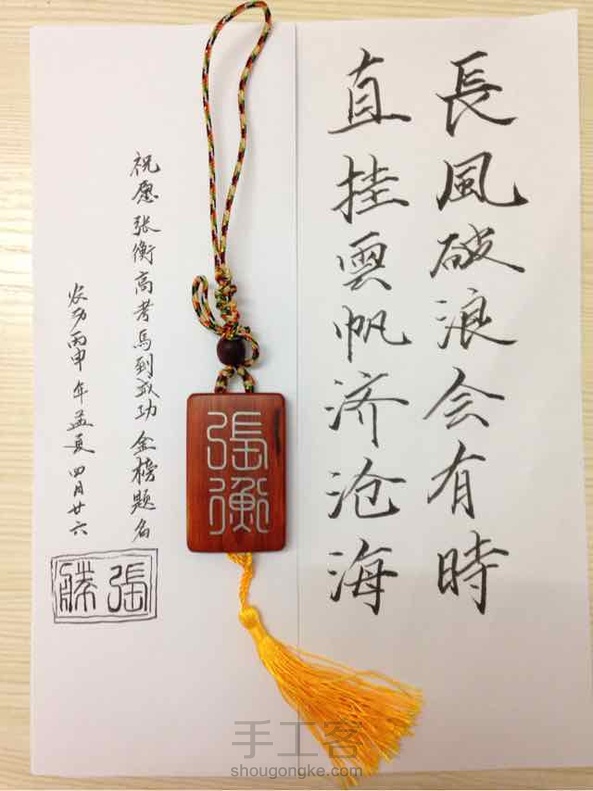 長風破浪会有時
直挂雲帆济沧海
張衡
祝愿张衡高考馬到成功 金榜题名
农历丙申年孟夏四月廿六
張
手工客
shougongke.com